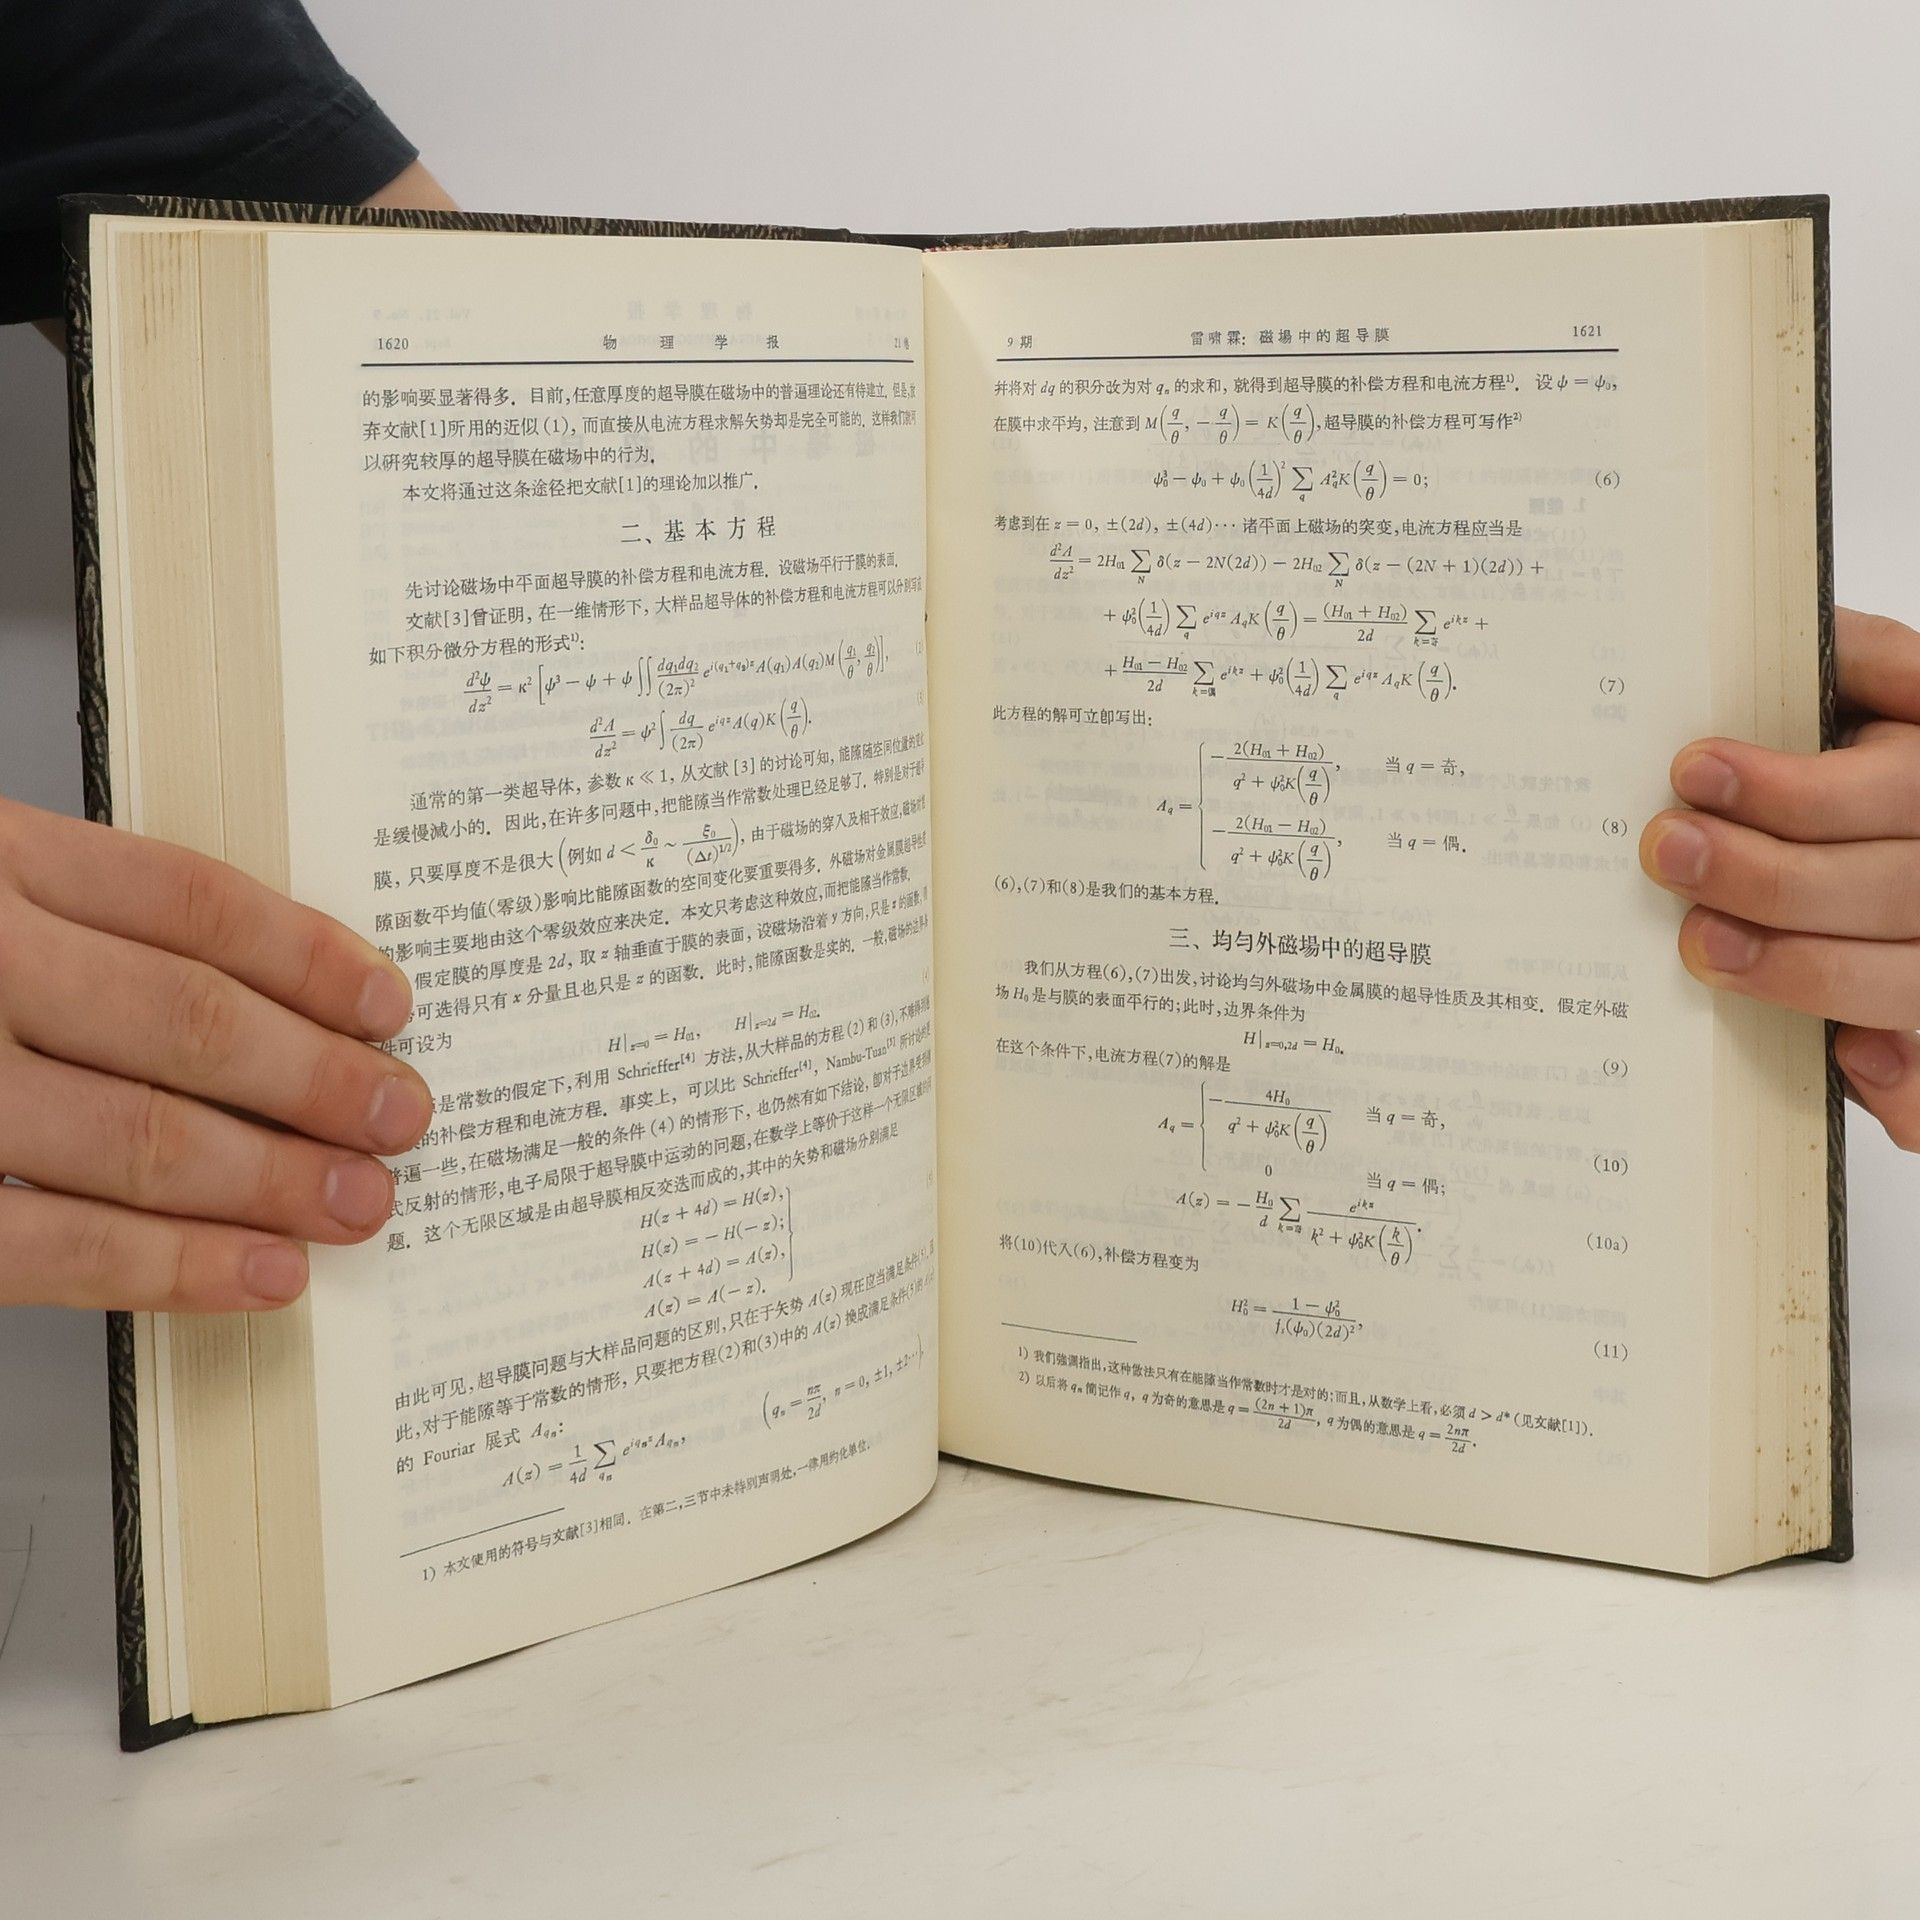 1620 物理学报 21卷
的影响要显著得多．目前,任意厚度的超导膜在磁场中的普遍理论还有待建立．但是,放
弃文献[1]所用的近似(1)，而直接从电流方程求解矢势却是完全可能的．这样我们就可
以研究较厚的超导膜在磁场中的行为．
本文将通过这条途径把文献[1]的理论加以推广．
二、基本方程
先讨论磁场中平面超导膜的补偿方程和电流方程．设磁场平行于膜的表面．
文献[3]曾证明，在一维情形下，大样品超导体的补偿方程和电流方程可以分别写成
如下积分微分方程的形式¹⁾：
d²ψ/dz² = κ² [ψ³ − ψ + ψ ∬ dq₁dq₂/(2π)² e^{i(q₁+q₂)z} A(q₁)A(q₂)M(q₁/θ, q₂/θ)], (2)
d²A/dz² = ψ² ∫ dq/(2π) e^{iqz} A(q)K(q/θ). (3)
通常的第一类超导体，参数 κ ≪ 1，从文献[3]的讨论可知，能隙随空间位置的变化
是缓慢减小的．因此,在许多问题中,把能隙当作常数处理已经足够了．特别是对于超导
膜，只要厚度不是很大(例如 d < δ₀/κ ~ ξ₀/(Δt)^{1/2})，由于磁场的穿入及相干效应,磁场对能
隙函数平均值(零级)影响比能隙函数的空间变化要重要得多．外磁场对金属膜超导性质
的影响主要地由这个零级效应来决定．本文只考虑这种效应,而把能隙当作常数．
假定膜的厚度是 2d，取 z 轴垂直于膜的表面，设磁场沿着 y 方向,只是 z 的函数,
可选得只有 x 分量且也只是 z 的函数．此时，能隙函数是实的．一般,磁场的边界条
件可设为
H|_{z=0} = H₀₁, H|_{z=2d} = H₀₂. (4)
是常数的假定下,利用 Schrieffer[4] 方法,从大样品的方程(2)和(3),不难得到
的补偿方程和电流方程．事实上，可以比 Schrieffer[4], Nambu-Tuan[5] 所讨论的更
普遍一些,在磁场满足一般的条件(4)的情形下，也仍然有如下结论，即对于边界受到
式反射的情形,电子局限于超导膜中运动的问题,在数学上等价于这样一个无限区域的问
题．这个无限区域是由超导膜相反交迭而成的,其中的矢势和磁场分别满足
H(z + 4d) = H(z),
H(z) = −H(−z);
A(z + 4d) = A(z),
A(z) = A(−z). (5)
由此可见,超导膜问题与大样品问题的区别,只在于矢势 A(z) 现在应当满足条件(5)．因
此,对于能隙等于常数的情形，只要把方程(2)和(3)中的 A(z) 换成满足条件(5)的 A(z)
的 Fouriar 展式 A_{qₙ}:
A(z) = 1/4d ∑_{qₙ} e^{iqₙz} A_{qₙ}, (qₙ = nπ/2d, n = 0, ±1, ±2···),
1) 本文使用的符号与文献[3]相同．在第二,三节中未特别声明处,一律用约化单位．
9期 雷啸霖：磁場中的超导膜 1621
并将对 dq 的积分改为对 qₙ 的求和，就得到超导膜的补偿方程和电流方程¹⁾．设 ψ = ψ₀,
在膜中求平均，注意到 M(q/θ, −q/θ) = K(q/θ),超导膜的补偿方程可写作²⁾
ψ₀³ − ψ₀ + ψ₀(1/4d)² ∑_q A_q²K(q/θ) = 0; (6)
考虑到在 z = 0, ±(2d), ±(4d)··· 诸平面上磁场的突变,电流方程应当是
d²A/dz² = 2H₀₁ ∑_N δ(z − 2N(2d)) − 2H₀₂ ∑_N δ(z − (2N + 1)(2d)) +
+ ψ₀²(1/4d) ∑_q e^{iqz} A_qK(q/θ) = (H₀₁ + H₀₂)/2d ∑_{k=奇} e^{ikz} +
+ (H₀₁ − H₀₂)/2d ∑_{k=偶} e^{ikz} + ψ₀²(1/4d) ∑_q e^{iqz} A_qK(q/θ). (7)
此方程的解可立即写出：
−2(H₀₁ + H₀₂)/(q² + ψ₀²K(q/θ)), 当 q = 奇,
A_q = (8)
−2(H₀₁ − H₀₂)/(q² + ψ₀²K(q/θ)), 当 q = 偶．
(6),(7)和(8)是我们的基本方程．
三、均匀外磁場中的超导膜
我们从方程(6),(7)出发,讨论均匀外磁场中金属膜的超导性质及其相变．假定外磁
场 H₀ 是与膜的表面平行的;此时,边界条件为
H|_{z=0,2d} = H₀. (9)
在这个条件下,电流方程(7)的解是
A_q = −4H₀/(q² + ψ₀²K(q/θ)) 当 q = 奇, (10)
0 当 q = 偶;
A(z) = −H₀/d ∑_{k=奇} e^{ikz}/(k² + ψ₀²K(k/θ)). (10a)
将(10)代入(6),补偿方程变为
H₀² = (1 − ψ₀²)/(f_s(ψ₀)(2d)²), (11)
1) 我们强调指出,这种做法只有在能隙当作常数时才是对的;而且,从数学上看,必须 d > d*(见文献[1])．
2) 以后将 qₙ 简记作 q，q 为奇的意思是 q = (2n + 1)π/2d, q 为偶的意思是 q = 2nπ/2d.